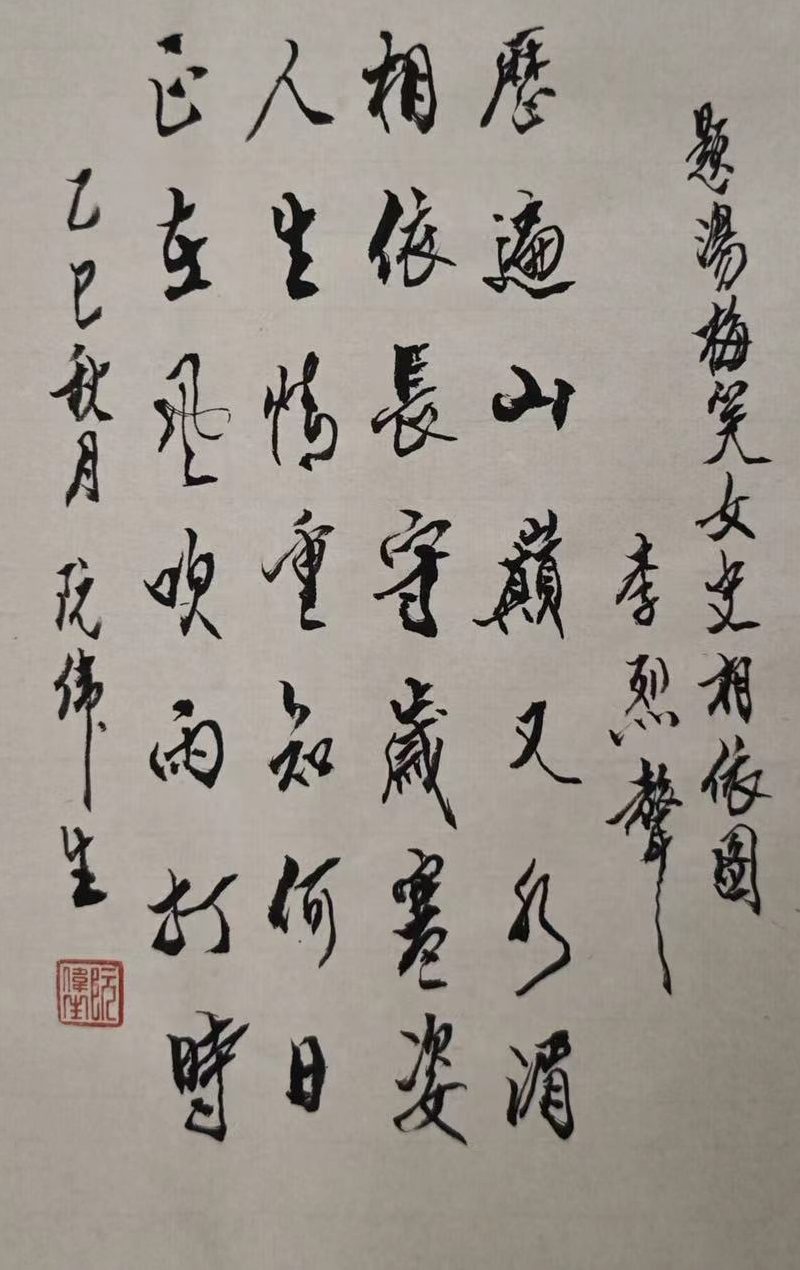 題湯梅笑女史相依圖
李烈聲
歷遍山巔又水湄
相依長守歲寒姿
人生情重知何日
正在風吹雨打時
乙巳秋月 阮偉生
阮偉生